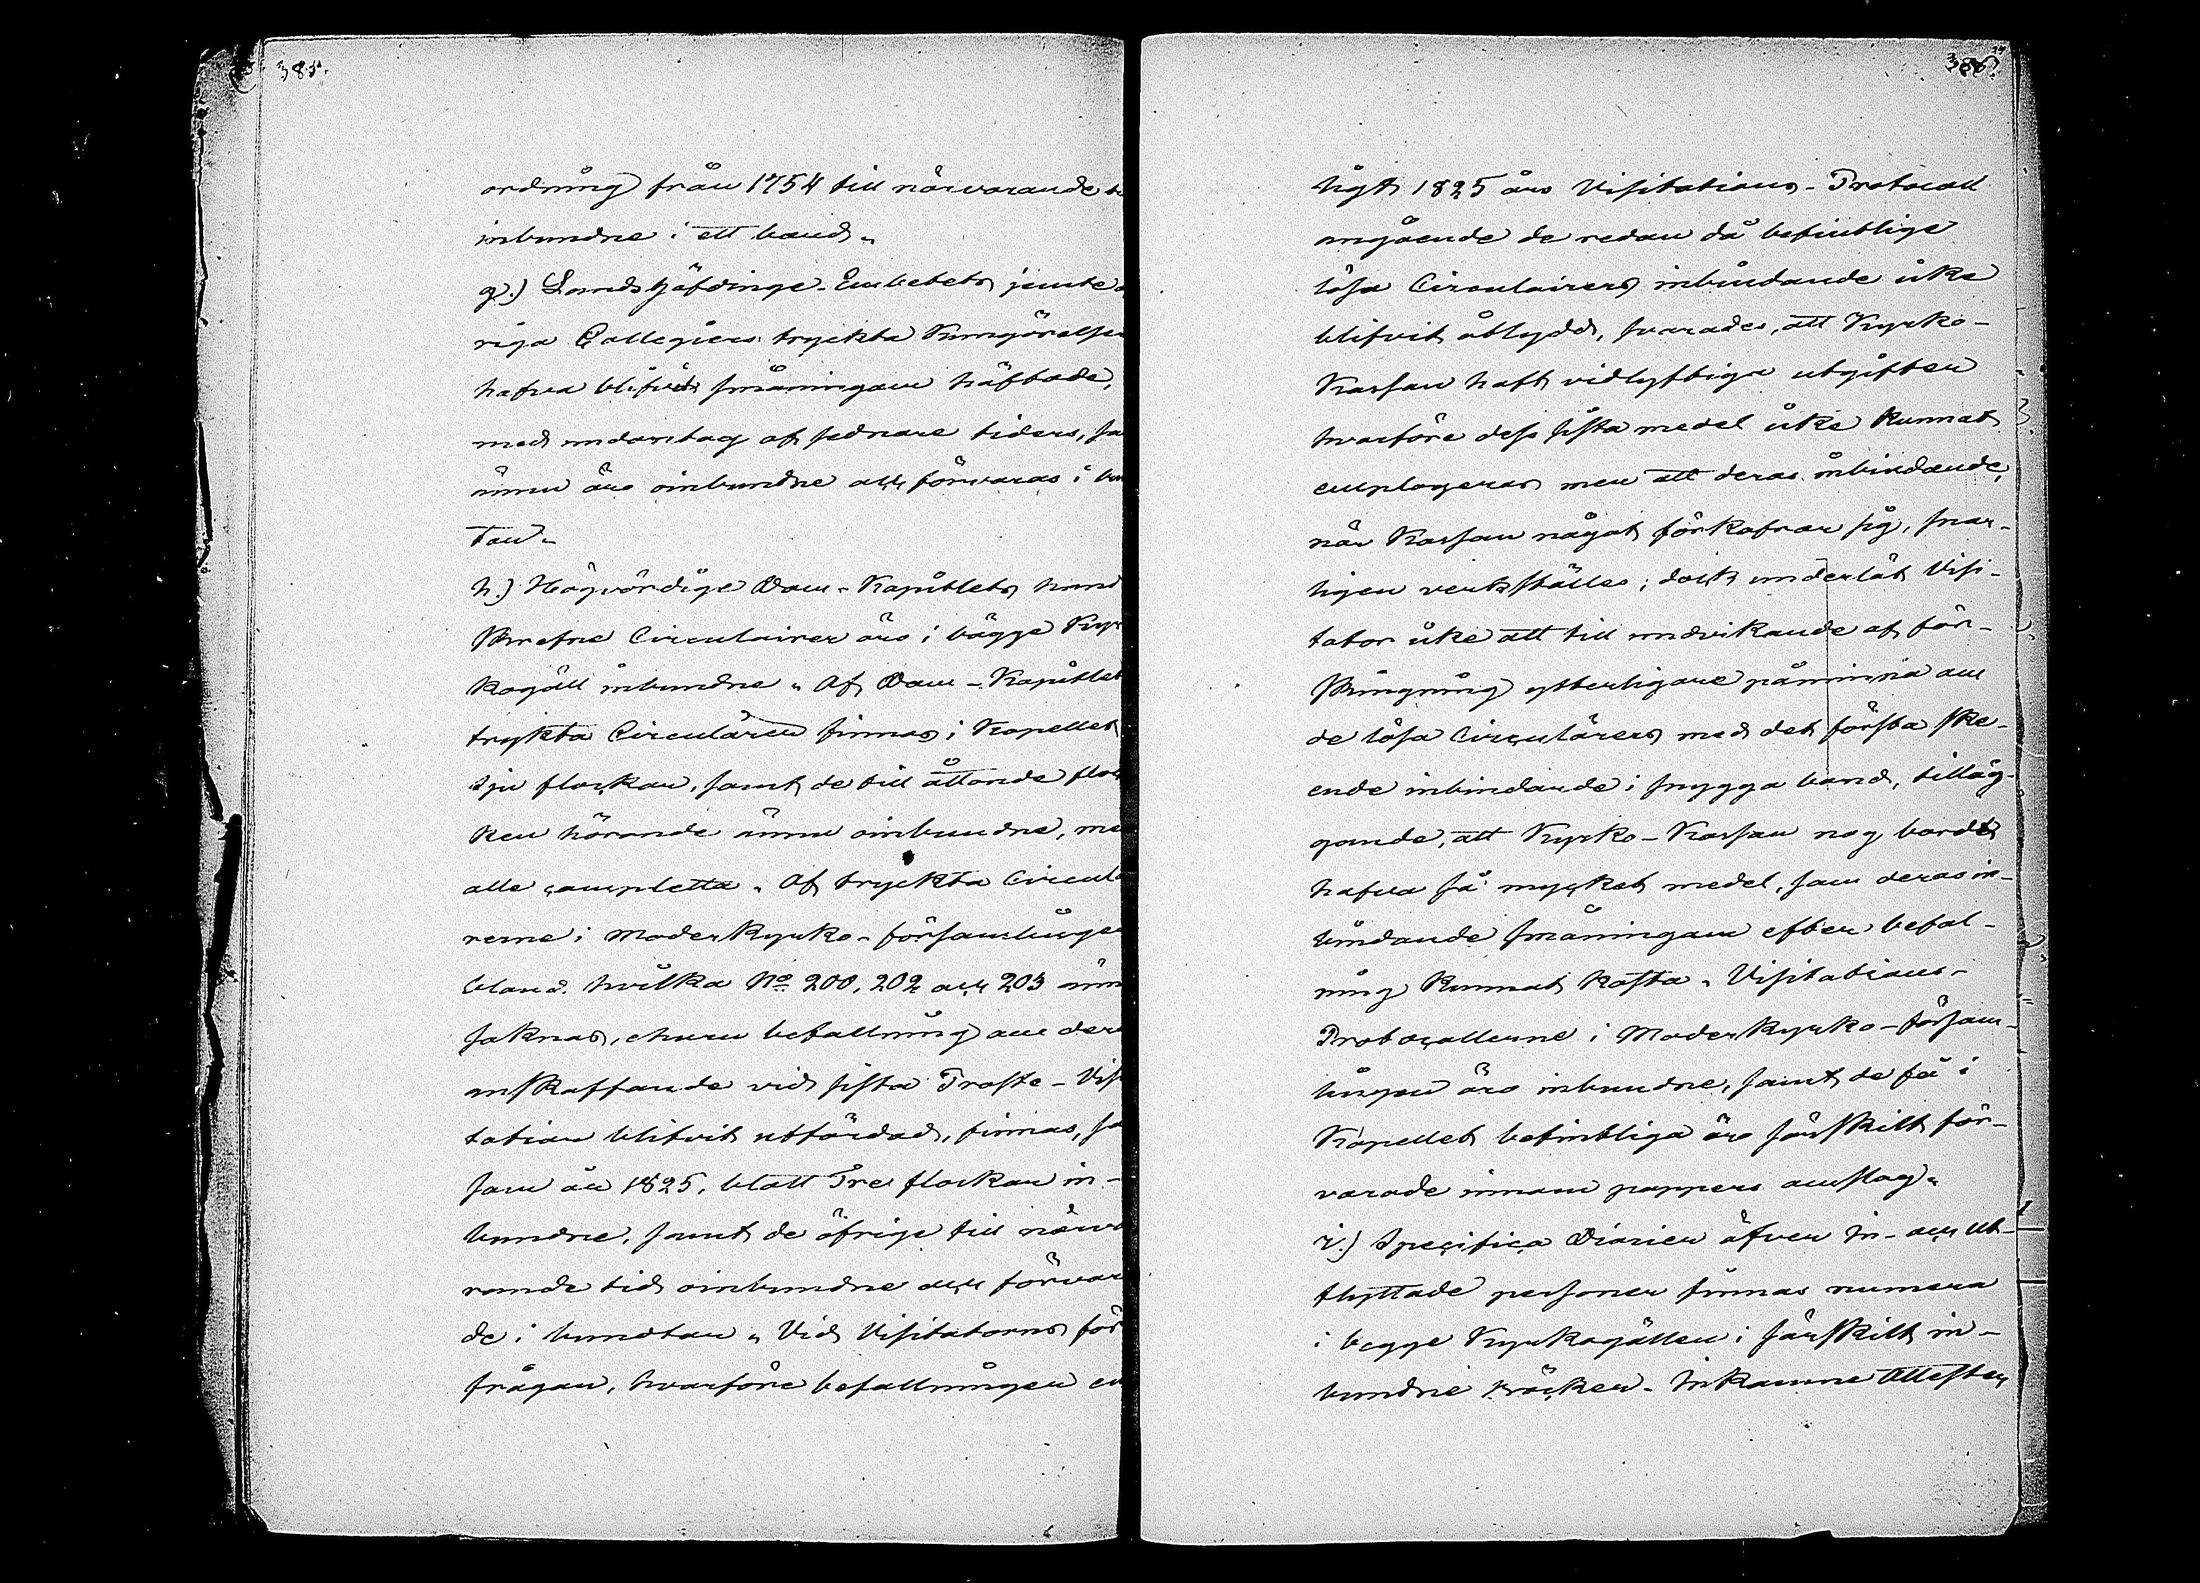 385.
ordning från 1754 till närvarande
inbundne i ett band.
g.) Landshöfdinge-Embetets jemte
riga Collegiers tryckta Kungörelser
hafva blifvit småningom häftade,
med undantag af sednare tiders, so
ännu äro oinbundne och förvaras i bun
tar.
h.) Högvördige Dom-Kapitlets hand
skrefne Circulairer äro i bägge Kyr
kogäll inbundne. Af Dom-Kapitlet
tryckta Circulärer finnas i Kapellet
sju flockar, samt de till åttonde floc
ken hörande ännu oinbundne, me
alla completta. Af tryckta Circulä
rerne i Moderkyrko-församlingen
bland hvilka No 200, 202 och 203 änn
saknas, ehuru befallning om dera
anskaffande vid sista Proste-Visi
tation blifvit utfärdad, finnas, så
som år 1825, blott Tre flockar in-
bundne, samt de öfrige till närva
rande tid oinbundne och förvara
de i bundtar. Vid Visitatorns för
frågan, hvarföre befallningen en
386.
ligt 1825 års Visitations-Protocoll
angående de redan då befintlige
lösa Circulairers inbindande icke
blifvit åtlydd, svarades, att Kyrko-
Kassan haft vidlyftiga utgifter
hvarföre dess sista medel icke kunnat
employeras men att deras inbindande,
när Kassan något förkofrar sig, snar-
ligen verkställes; dock underlät Visi-
tator icke att till undvikande af för-
skingring ytterligare påminna om
de lösa Circulärers med det första ske-
ende inbindande i snygga band, tilläg-
gande, att Kyrko-Kassan nog bordt
hafva så mycket medel, som deras in-
bindande småningom efter befal-
ning kunnat kosta. Visitations-
Protocollerne i Moderkyrko-försam-
lingen äro inbundne, samt de få i
Kapellet befintliga äro särskilt för-
varade innom pappers omslag.
i.) Specifica Diarier öfver In- och Ut-
flyttade personer finnas numera
i begge Kyrkogällen i särskilt in-
bundne böcker. Inkomne Attester